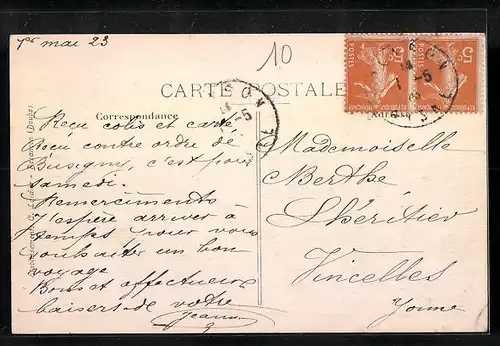 1er mai 23
10
CARTE POSTALE
Correspondance
Adresse
Reçu colis et carte
Reçu contre ordre de
Busigny, c'est pour
samedi.
Remerciments
J'espère arriver à
temps pour vous
souhaiter un bon
voyage
Bons et affectueux
baisers de votre
Jeanne
Mademoiselle
Berthe
Lhéritier
Vincelles
Yonne
5c
POSTES
5c
POSTES